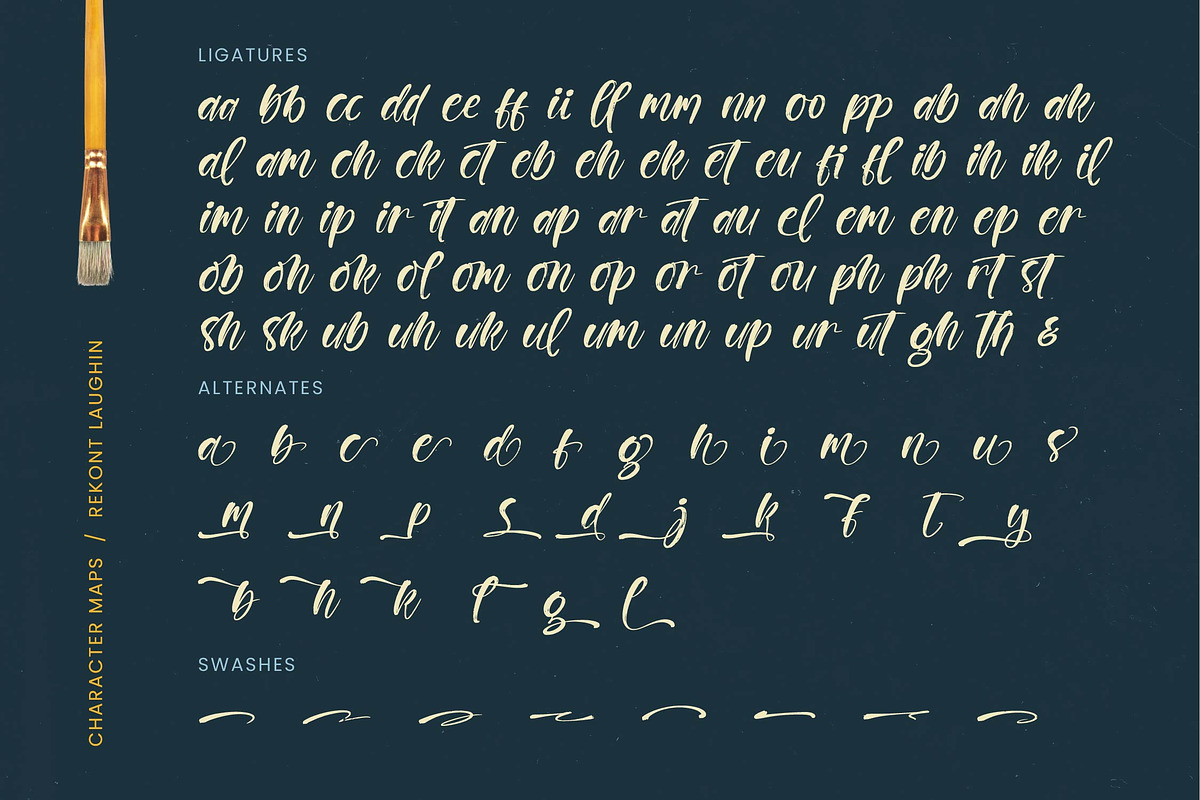 LIGATURES
aa bb cc dd ee ff ii ll mm nn oo pp ab ah ak
al am ch ck ct eb eh ek et eu fi fl ib ih ik il
im in ip ir it an ap ar at au el em en ep er
ob oh ok ol om on op or ot ou ph pk rt st
sh sk ub uh uk ul um un up ur ut gh th &
ALTERNATES
a b c e d f g h i m n u s
m n p s d j k f t y
b h k t g l
SWASHES
CHARACTER MAPS / REKONT LAUGHIN